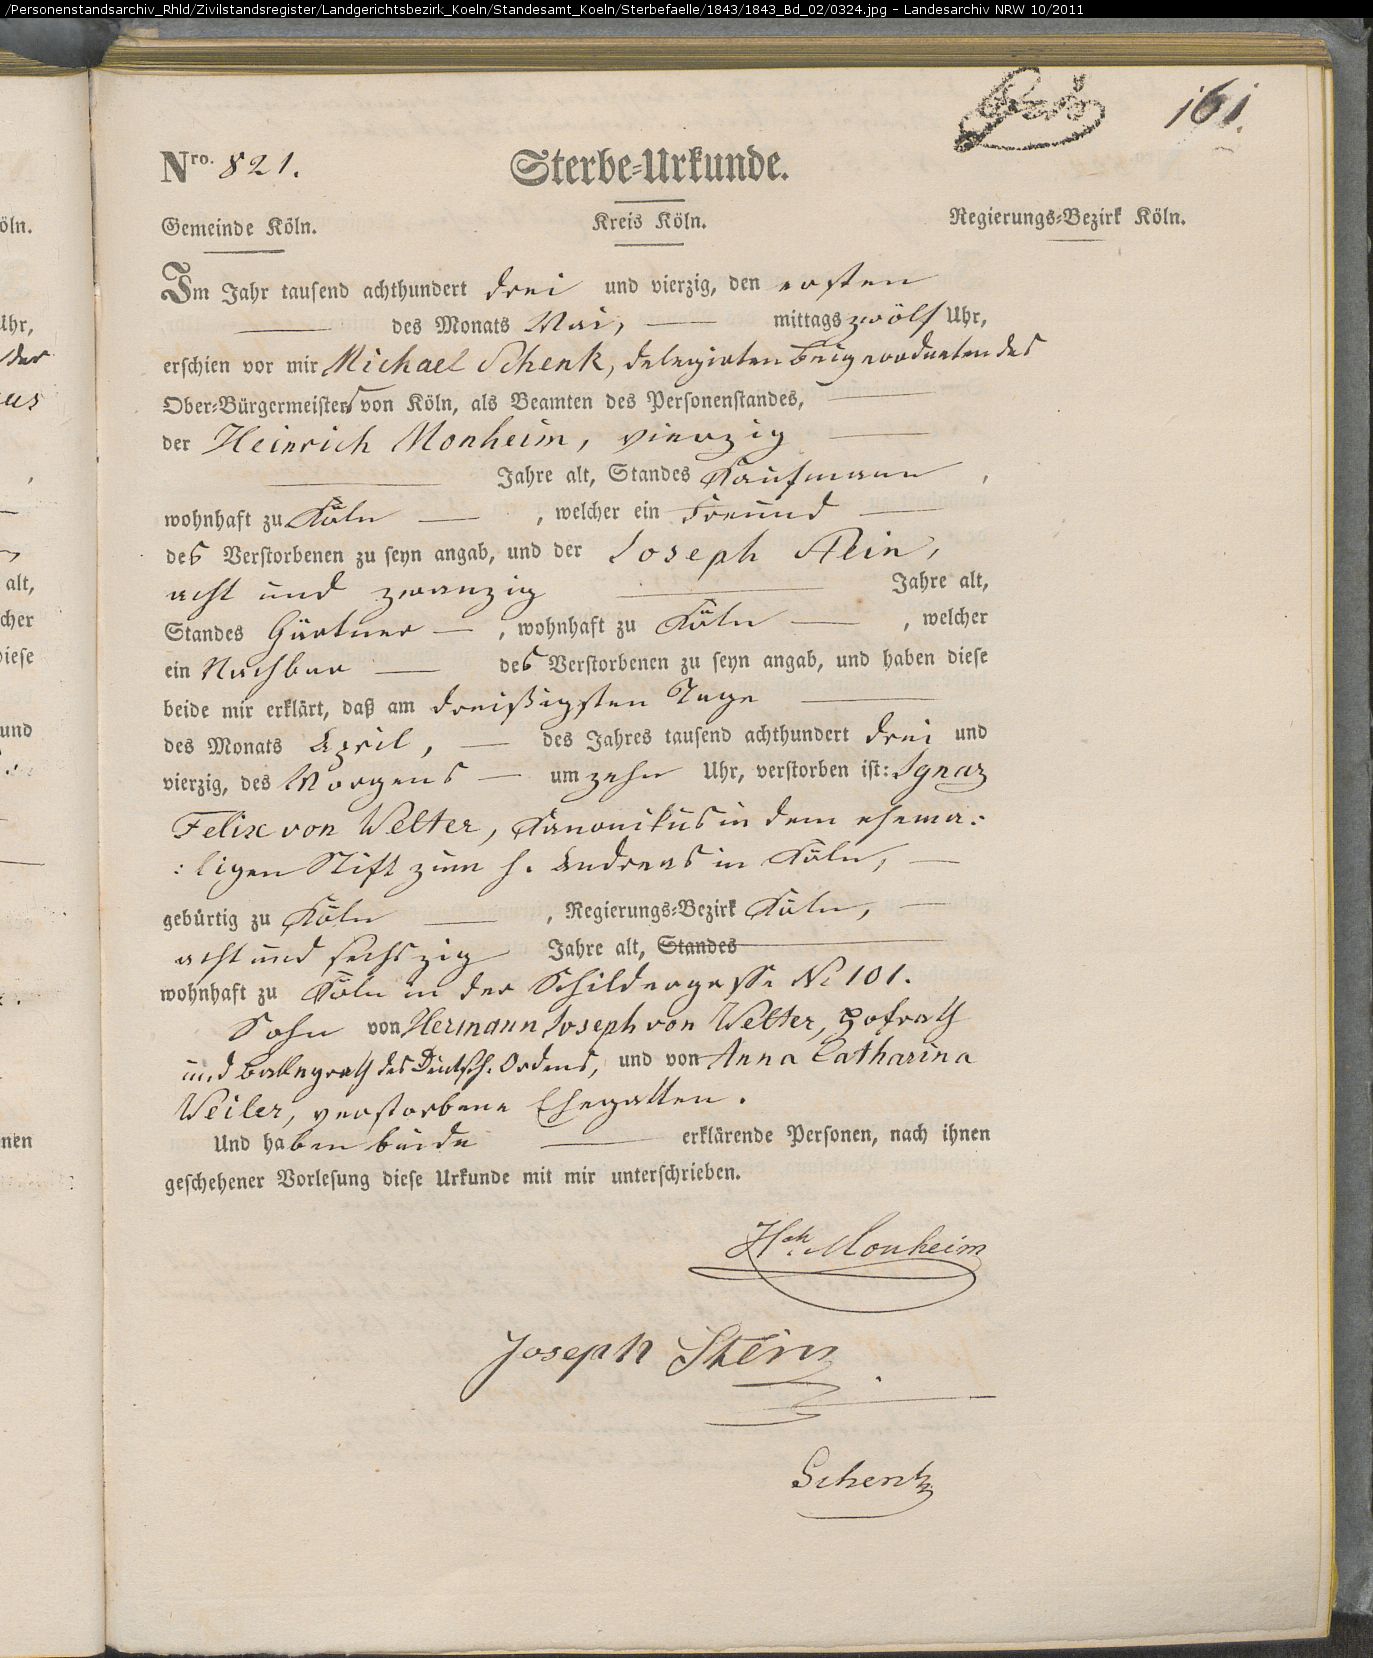 /Personenstandsarchiv_Rhld/Zivilstandsregister/Landgerichtsbezirk_Koeln/Standesamt_Koeln/Sterbefaelle/1843/1843_Bd_02/0324.jpg - Landesarchiv NRW 10/2011
161.
Nro. 821. Sterbe-Urkunde.
Gemeinde Köln. Kreis Köln. Regierungs-Bezirk Köln.
Im Jahr tausend achthundert drei und vierzig, den ersten
des Monats Mai, mittags zwölf Uhr,
erschien vor mir Michael Schenk, delegirten Beigeordneten des
Ober-Bürgermeisters von Köln, als Beamten des Personenstandes,
der Heinrich Monheim, vierzig
Jahre alt, Standes Kaufmann,
wohnhaft zu Köln, welcher ein Freund
des Verstorbenen zu seyn angab, und der Joseph Stein,
acht und zwanzig Jahre alt,
Standes Gärtner, wohnhaft zu Köln, welcher
ein Nachbar des Verstorbenen zu seyn angab, und haben diese
beide mir erklärt, daß am dreißigsten Tage
des Monats April, des Jahres tausend achthundert drei und
vierzig, des Morgens um zehn Uhr, verstorben ist: Ignaz
Felix von Welter, Kanonikus in dem ehema:
:ligen Stift zum h. Andreas in Köln,
gebürtig zu Köln, Regierungs-Bezirk Köln,
acht und sechszig Jahre alt, Standes
wohnhaft zu Köln in der Schildergasse No 101.
Sohn von Hermann Joseph von Welter, Hofrath
und Balleyrath des Deutsch. Ordens, und von Anna Catharina
Weiler, verstorbene Ehegatten.
Und haben beide erklärende Personen, nach ihnen
geschehener Vorlesung diese Urkunde mit mir unterschrieben.
Hch. Monheim
Joseph Stein
Schenk